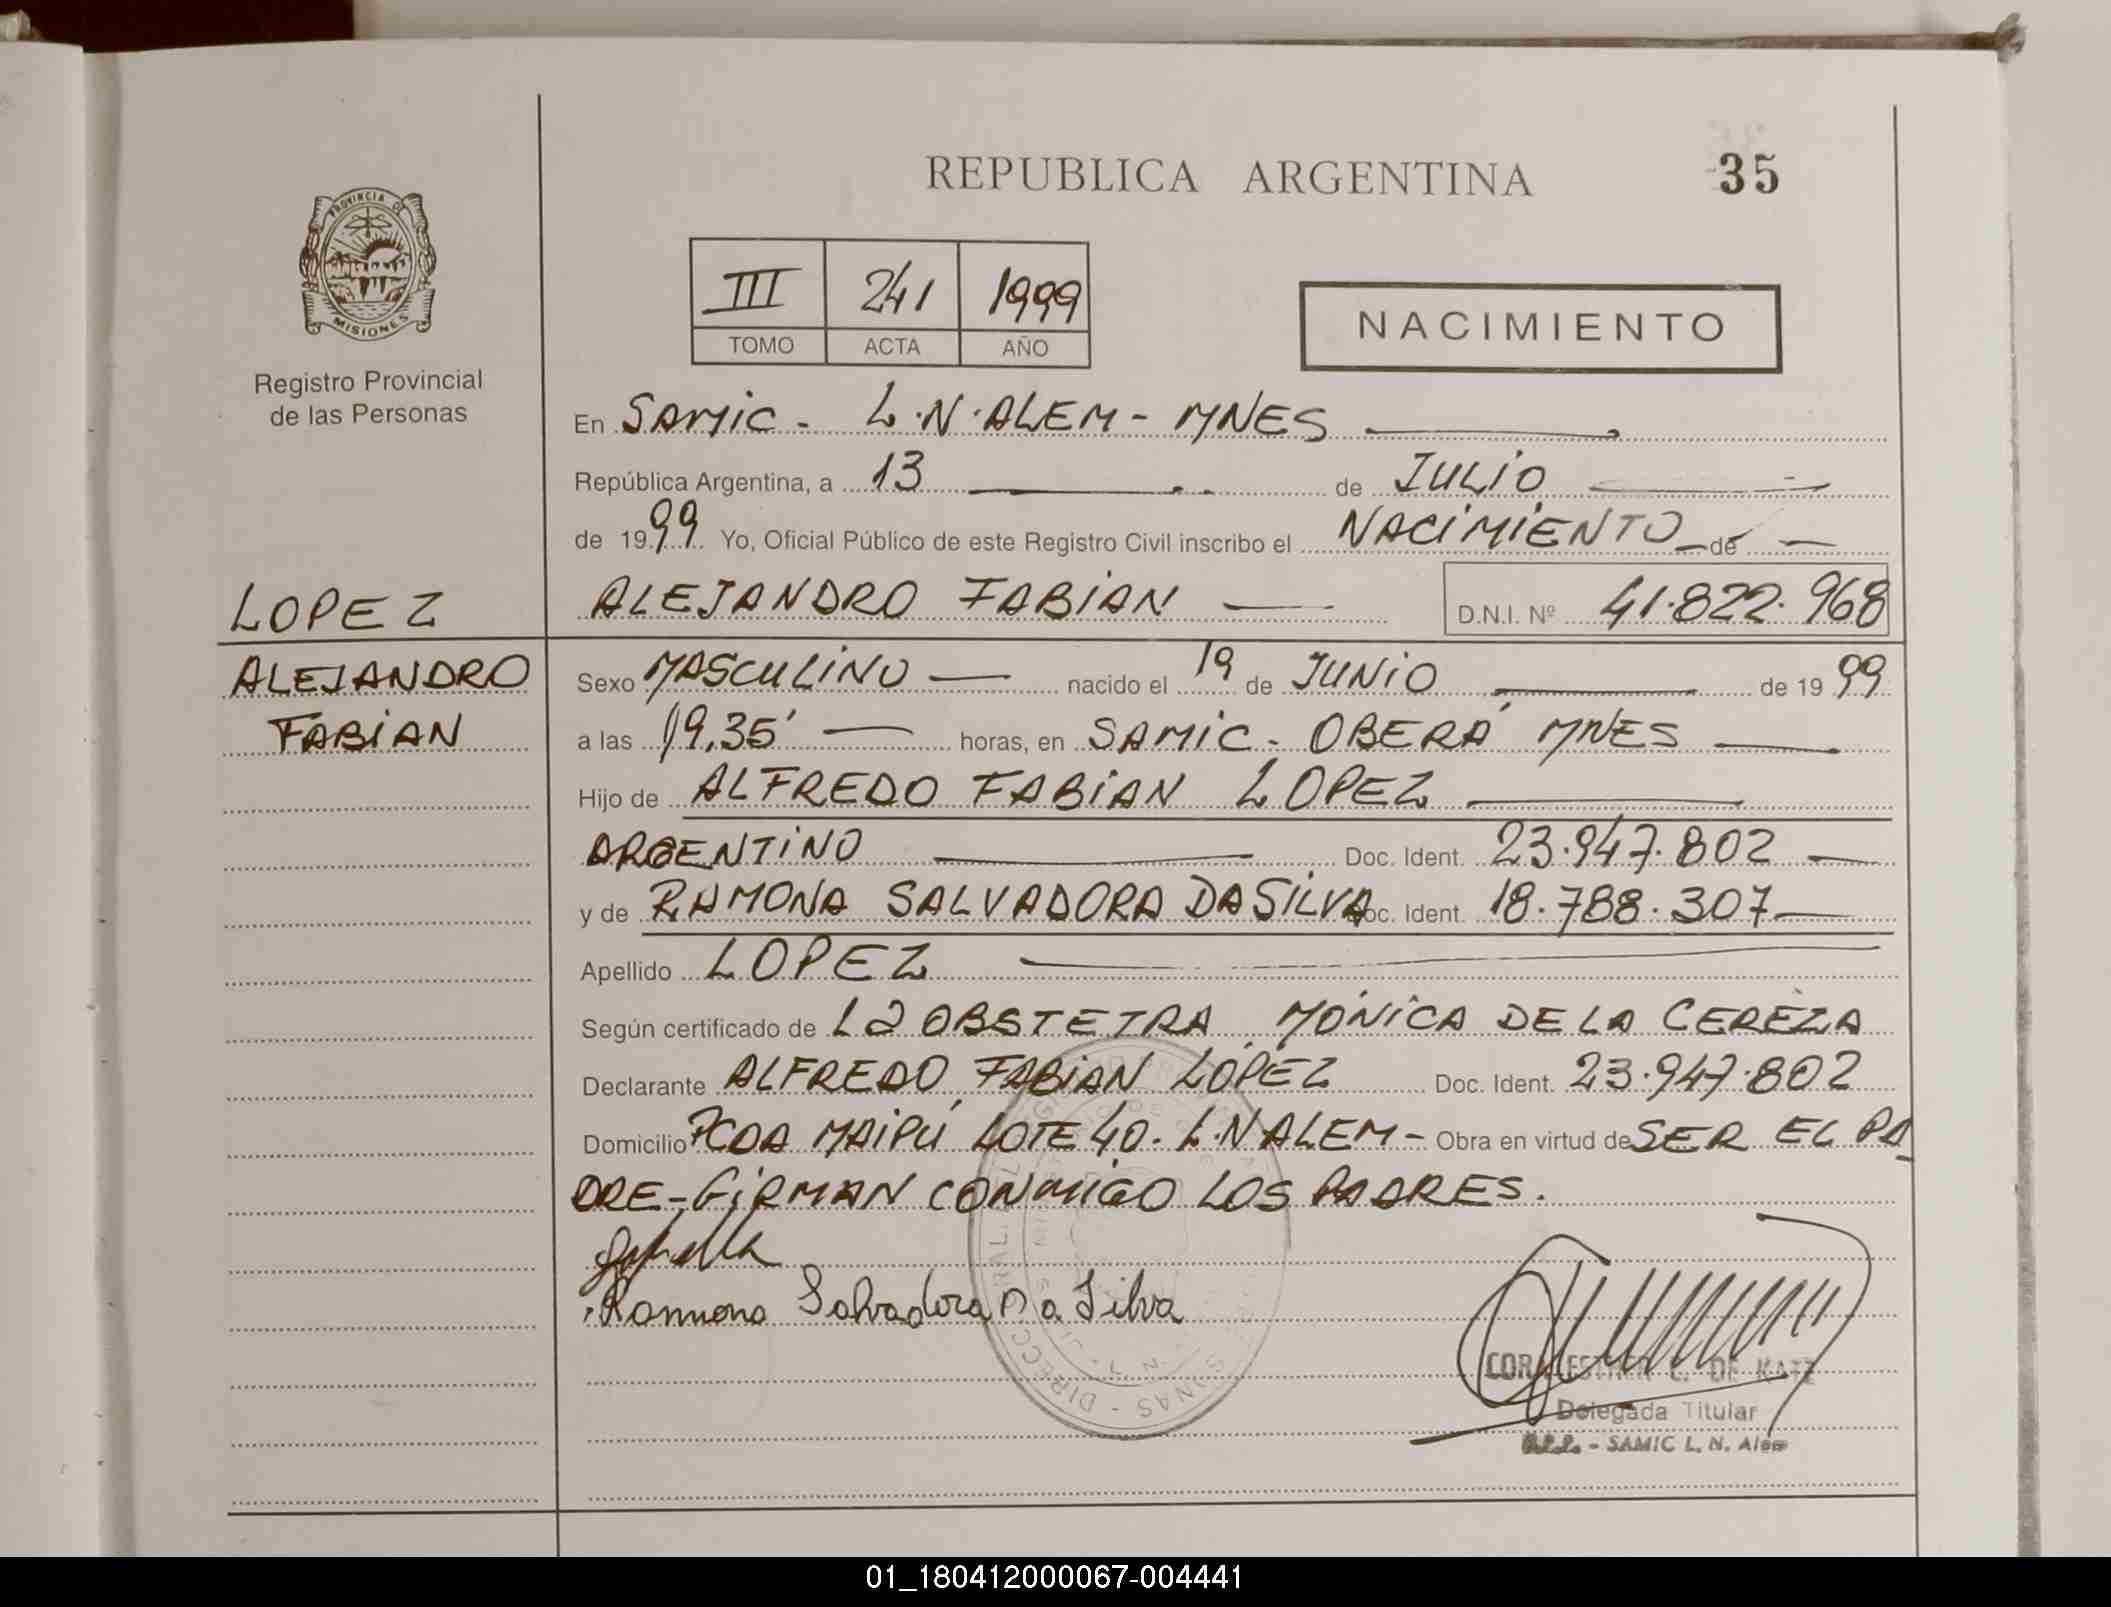 REPUBLICA ARGENTINA
35
PROVINCIA DE
MISIONES
Registro Provincial
de las Personas
III 241 1999
TOMO ACTA AÑO
NACIMIENTO
En SAMIC - L.N. ALEM - MNES
República Argentina, a 13 de JULIO
de 1999 Yo, Oficial Público de este Registro Civil inscribo el NACIMIENTO de
LOPEZ
ALEJANDRO FABIAN D.N.I. Nº 41.822.968
ALEJANDRO
FABIAN
Sexo MASCULINO nacido el 19 de JUNIO de 1999
a las 19,35' horas, en SAMIC - OBERÁ MNES
Hijo de ALFREDO FABIAN LOPEZ
ARGENTINO Doc. Ident. 23.947.802
y de RAMONA SALVADORA DA SILVA Doc. Ident. 18.788.307
Apellido LOPEZ
Según certificado de La OBSTETRA MÓNICA DE LA CEREZA
Declarante ALFREDO FABIAN LOPEZ Doc. Ident. 23.947.802
Domicilio PCDA MAIPÚ LOTE 40. L.N ALEM - Obra en virtud de SER EL PA
DRE - FIRMAN CONMIGO LOS PADRES.
Ramona Salvadora Da Silva
ESTHER C. DE KATZ
Delegada Titular
SAMIC L. N. Alem
01_180412000067-004441